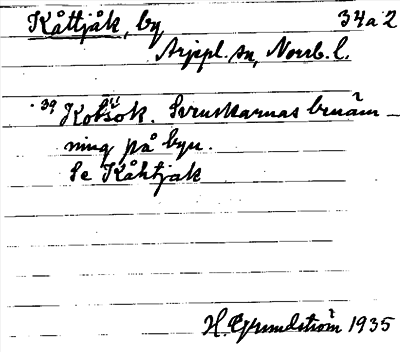 Kåttjåk, by 34a2
Arjepl. sn, Norrb. l.
Kobsok. Svenskarnas benäm-
ning på byn.
Se Kåhtjak
H. Grundström 1935